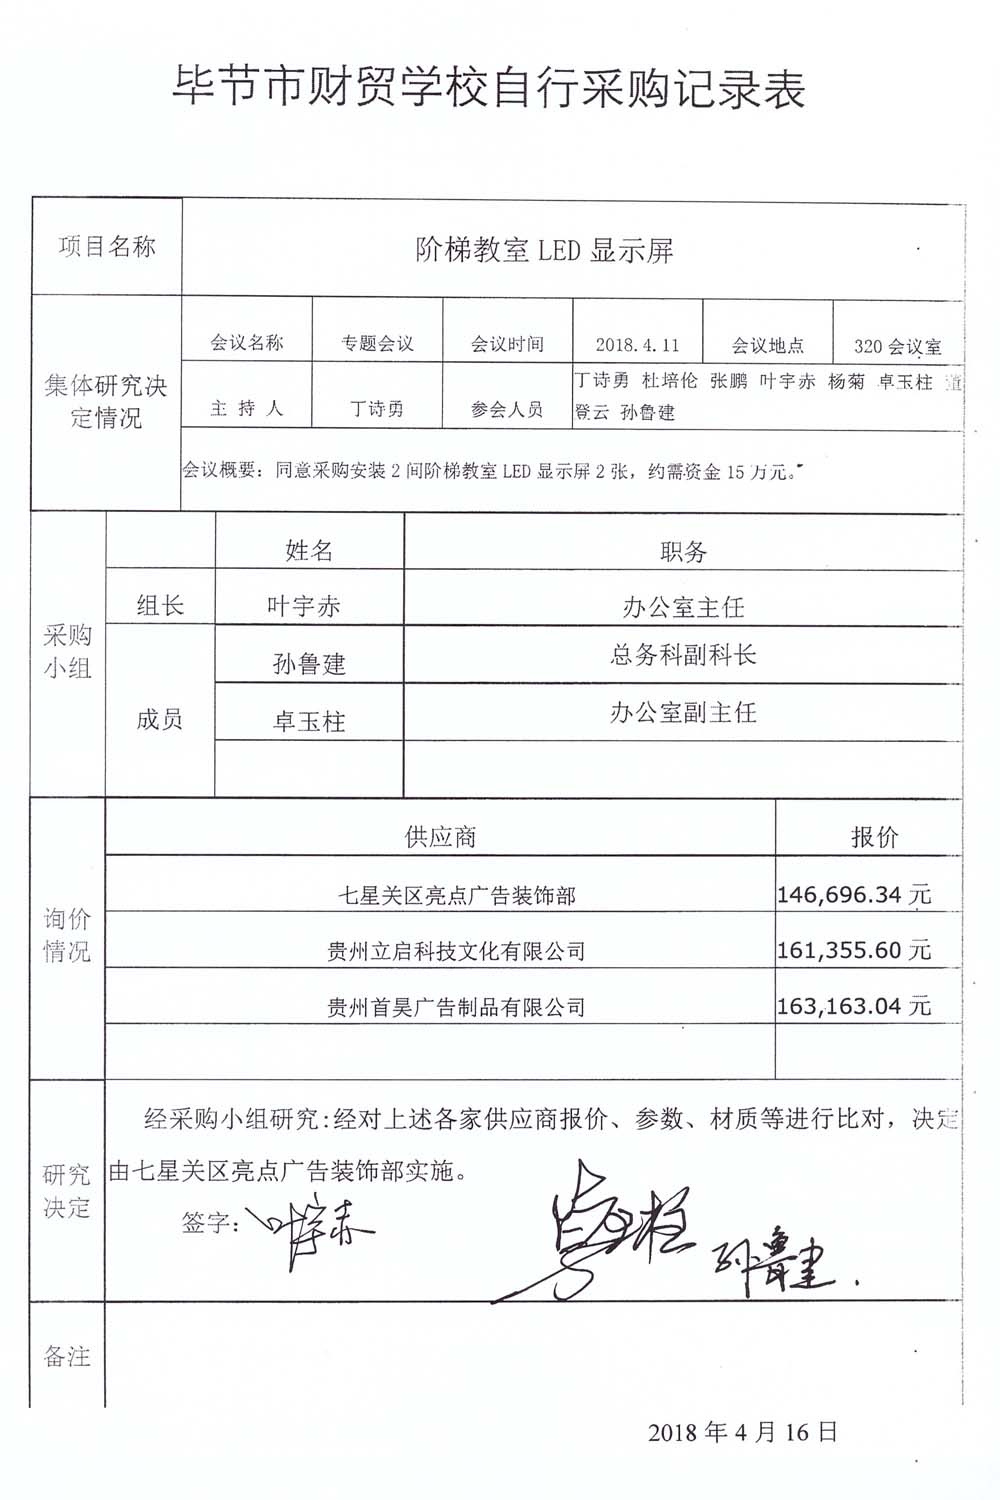 毕节市财贸学校自行采购记录表
项目名称
阶梯教室 LED 显示屏
集体研究决
定情况
会议名称
专题会议
会议时间
2018.4.11
会议地点
320 会议室
主 持 人
丁诗勇
参会人员
丁诗勇 杜培伦 张鹏 叶宇赤 杨菊 卓玉柱
登云 孙鲁建
会议概要：同意采购安装 2 间阶梯教室 LED 显示屏 2 张，约需资金 15 万元。
采购
小组
姓名
职务
组长
叶宇赤
办公室主任
成员
孙鲁建
总务科副科长
卓玉柱
办公室副主任
询价
情况
供应商
报价
七星关区亮点广告装饰部
146,696.34 元
贵州立启科技文化有限公司
161,355.60 元
贵州首昊广告制品有限公司
163,163.04 元
研究
决定
经采购小组研究:经对上述各家供应商报价、参数、材质等进行比对，决定
由七星关区亮点广告装饰部实施。
签字：叶宇赤 卓玉柱 孙鲁建
备注
2018 年 4 月 16 日